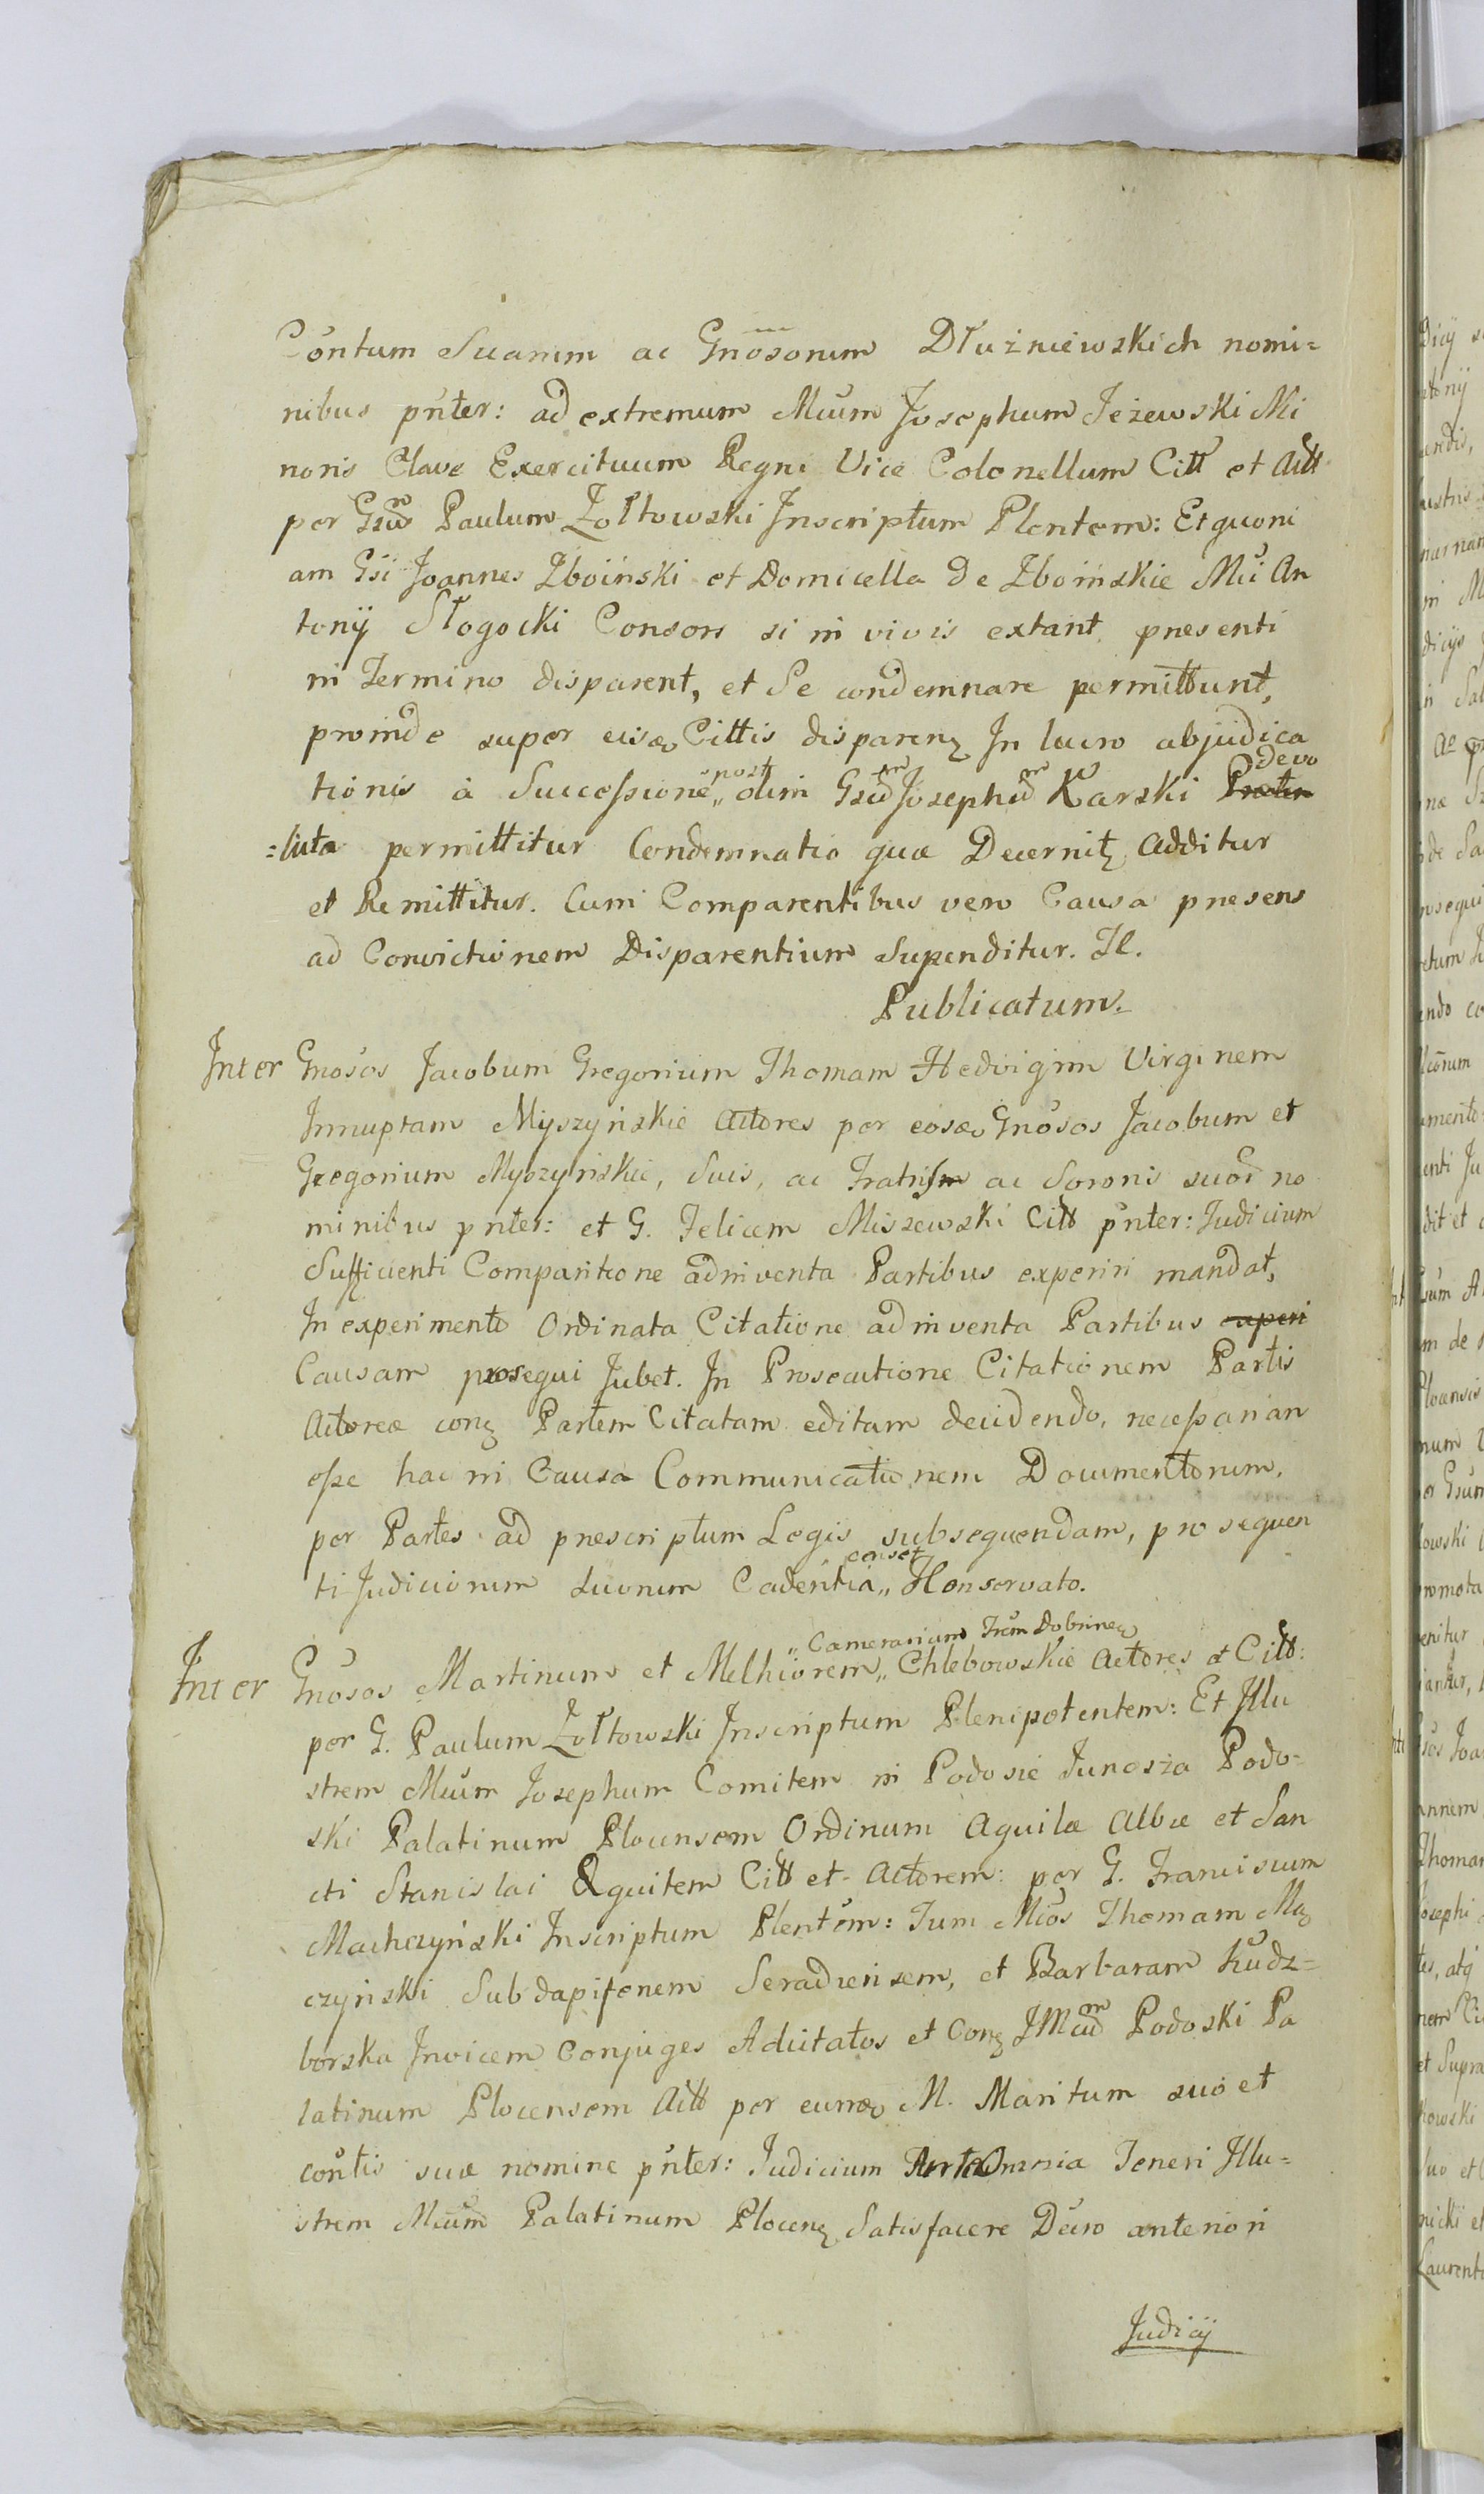 Cóntum Suarum ac Gnosorum Dłużniewskich nomi=
nibus pnter: ad extremum Mcum Josephum Jeżewski Mi
noris Clavæ Exercituum Regni Vice Colonellum Citt et Actt
per Gsum Paulum Żołtowski Inscriptum Plentem: Et quoni
am Gsi Joannes Zboiński et Domicella de Zboińskie Mci An
tonij Słogocki Consors si in vivis extant, presenti
in Termino disparent, et Se condemnare permittunt,
proinde super eisdem Cittis disparenz In lucro abjudica
tionis à Successione „post„ olim Gsum Josephum Karski Prætin devo
=luta permittitur Condemnatio quæ Decernitz Additur
et Remittitur. Cum Comparentibus vero Causa presens
ad Convictionem Disparentium Supenditur. Il.
Publicatum.
Inter Gnosos Jacobum Gregorium Thomam Hedvigim Virginem
Innuptam Myszyńskie Actores per eosdem Gnosos Jacobum et
Gregorium Myszyńskie, Suis, ac Fratris ac Sororis suor no
minibus pnter: et G. Felicem Miszewski Citt pnter: Judicium
Sufficienti Comparitione adinventa Partibus experiri mandat,
In experimento Ordinata Citatione adinventa Partibus experi
Causam prosequi Jubet. In Prosecutione Citationem Partis
Actoreæ conz Partem Citatam editam decidendo, necessarian
esse hac in Causa Communicationem Documentorum,
per Partes ad prescriptum Legis subsequendam, pro sequen
ti Judiciorum suorum Cadentia „censet„ Honservato.
Inter Gnosos Martinum et Melhiorem „Camerarium Trúm Dobrinen„ Chlebowskie Actores et Citt:
per G. Paulum Żołtowski Inscriptum Plenipotentem: Et Illu
strem Mcum Josephum Comitem in Podosie Junosza Podo=
ski Palatinum Plocensem Ordinum Aquilæ Albæ et San
cti Stanislai Equitem Citt et Actorem: per G. Franciscum
Machczyński Inscriptum Plentem: Tum Mcos Thomam Mą
czyński Subdapiferum Seradiensem, et Barbaram Kudz=
borska Invicem Conjuges Adcitatos et Conz IMcum Podoski Pa
latinum Plocensem Actt per eundem M. Maritum suo et
contis suæ nomine pnter: Judicium Ante Omnia Teneri Illu=
strem Mcum Palatinum Plocenz Satisfacere Dcuro anteriori
Judicij